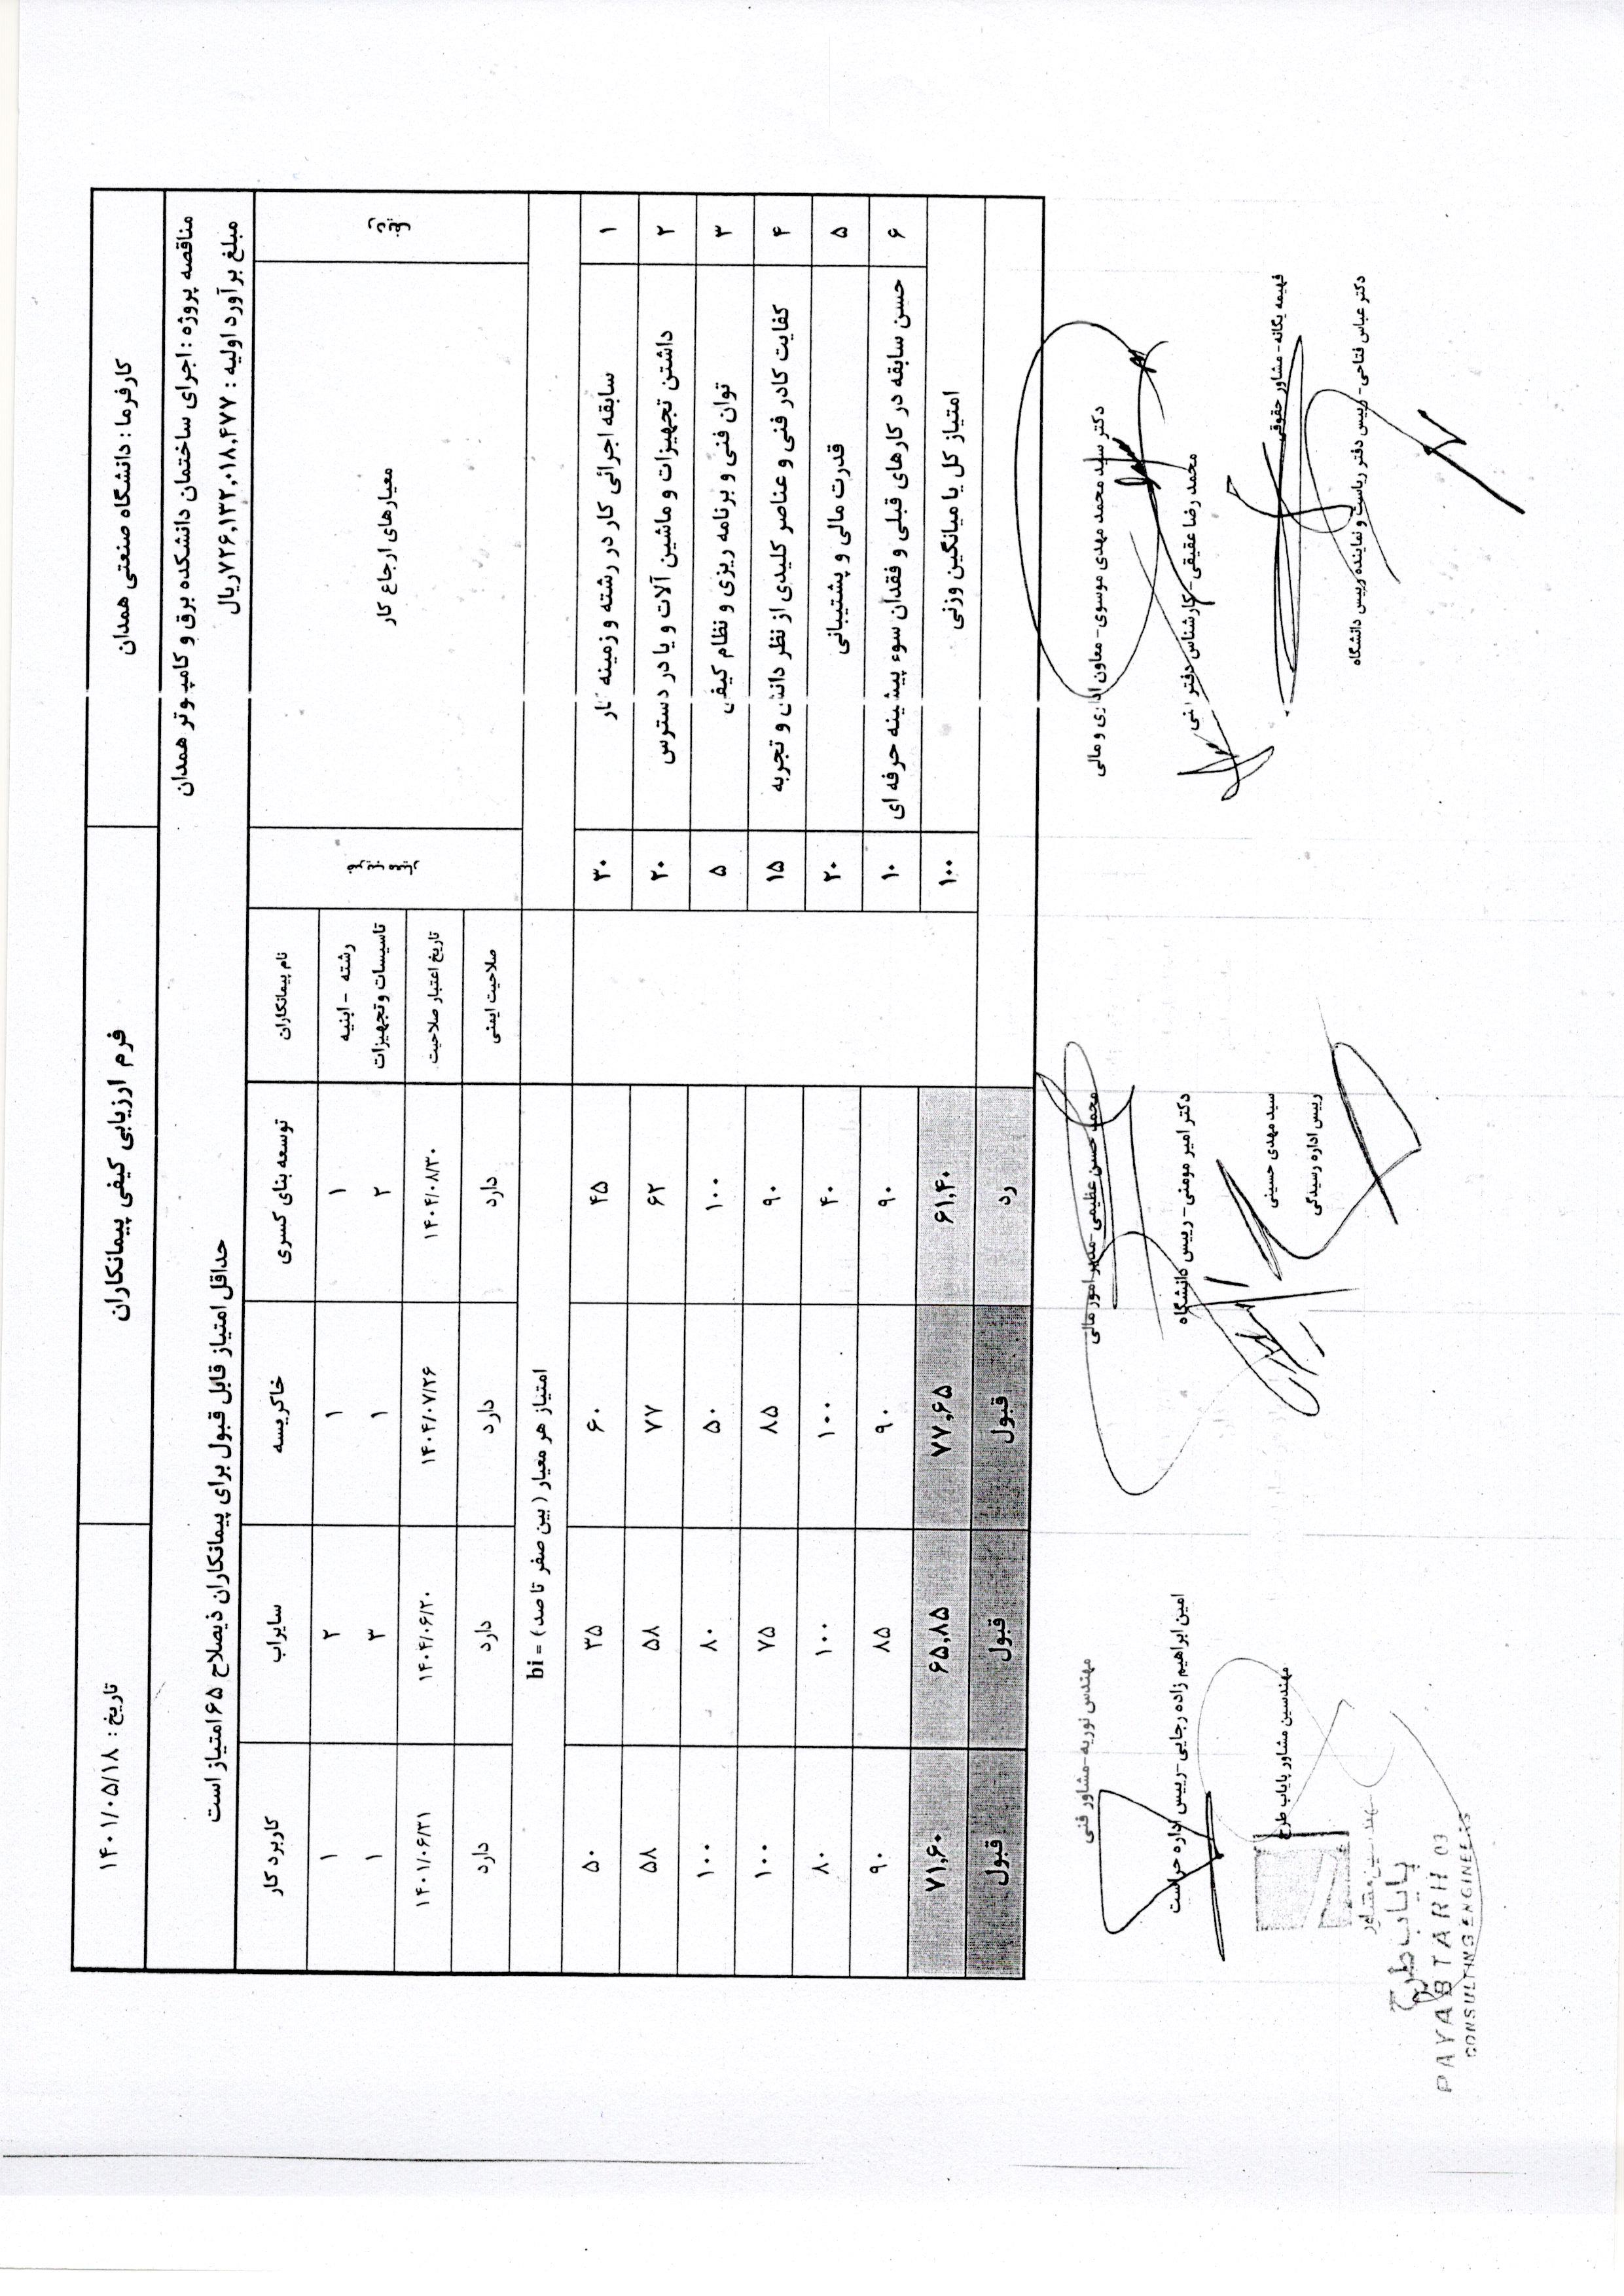 کارفرما : دانشگاه صنعتی همدان	فرم ارزیابی کیفی پیمانکاران	تاریخ : ۱۴۰۱/۰۵/۱۸
مناقصه پروژه : اجرای ساختمان دانشکده برق و کامپیوتر همدان
مبلغ برآورد اولیه : ۷۲۶،۱۳۲،۰۱۸،۴۷۷ریال	حداقل امتیاز قابل قبول برای پیمانکاران ذیصلاح ۶۵ امتیاز است
ردیف	معیارهای ارجاع کار	نام پیمانکاران	توسعه بنای کسری	خاکریسه	سایراب	کاربرد کار
رشته - ابنیه	۱	۱	۲	۱
تاسیسات وتجهیزات	۲	۱	۳	۱
تاریخ اعتبار صلاحیت	۱۴۰۴/۰۸/۳۰	۱۴۰۴/۰۷/۲۶	۱۴۰۴/۰۶/۲۰	۱۴۰۱/۰۶/۳۱
صلاحیت ایمنی	دارد	دارد	دارد	دارد
امتیاز هر معیار ( بین صفر تا صد ) = bi
۱	سابقه اجرائی کار در رشته و زمینه کار	۳۰	۴۵	۶۰	۳۵	۵۰
۲	داشتن تجهیزات و ماشین آلات و یا در دسترس	۲۰	۶۲	۷۷	۵۸	۵۸
۳	توان فنی و برنامه ریزی و نظام کیفی	۵	۱۰۰	۵۰	۸۰	۱۰۰
۴	کفایت کادر فنی و عناصر کلیدی از نظر دانش و تجربه	۱۵	۹۰	۸۵	۷۵	۱۰۰
۵	قدرت مالی و پشتیبانی	۲۰	۴۰	۱۰۰	۱۰۰	۸۰
۶	حسن سابقه در کارهای قبلی و فقدان سوء پیشینه حرفه ای	۱۰	۹۰	۹۰	۸۵	۹۰
امتیاز کل یا میانگین وزنی	۱۰۰	۶۱،۴۰	۷۷،۶۵	۶۵،۸۵	۷۱،۶۰
رد	قبول	قبول	قبول
دکتر سید محمد مهدی موسوی - معاون اداری و مالی	محمد حسن عظیمی -مدیر امور مالی	مهندس نوریه-مشاور فنی
محمد رضا عقیقی - کارشناس دفتر فنی	دکتر امیر مومنی - رییس دانشگاه	امین ابراهیم زاده رجایی-رییس اداره حراست
فهیمه یگانه - مشاور حقوقی	سید مهدی حسینی	مهندسین مشاور پایاب طرح
دکتر عباس فتاحی - رییس دفتر ریاست و نماینده رییس دانشگاه	رییس اداره رسیدگی
مهندسین مشاور
پایاب طرح
PAYAB TARH
CONSULTING ENGINEERS